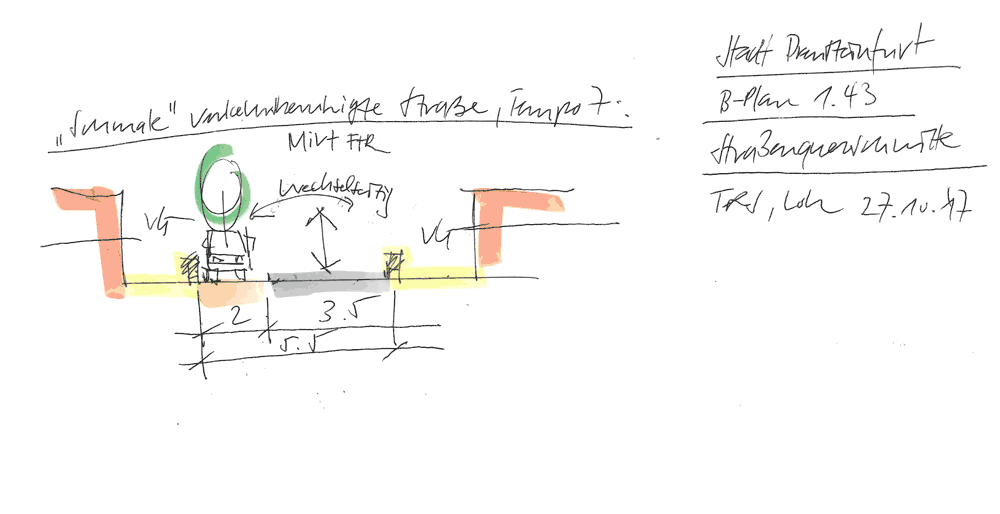 Stadt Drensteinfurt
B-Plan 1.43
Straßenquerschnitte
27.10.17
„Schmale" verkehrsberuhigte Straße, Tempo 7.
Mivt FHR
wechselseitig
VG
VG
2
3.5
5.5